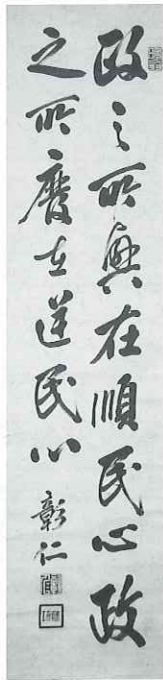 政之所興在順民心政
之所廢在逆民心
彰仁